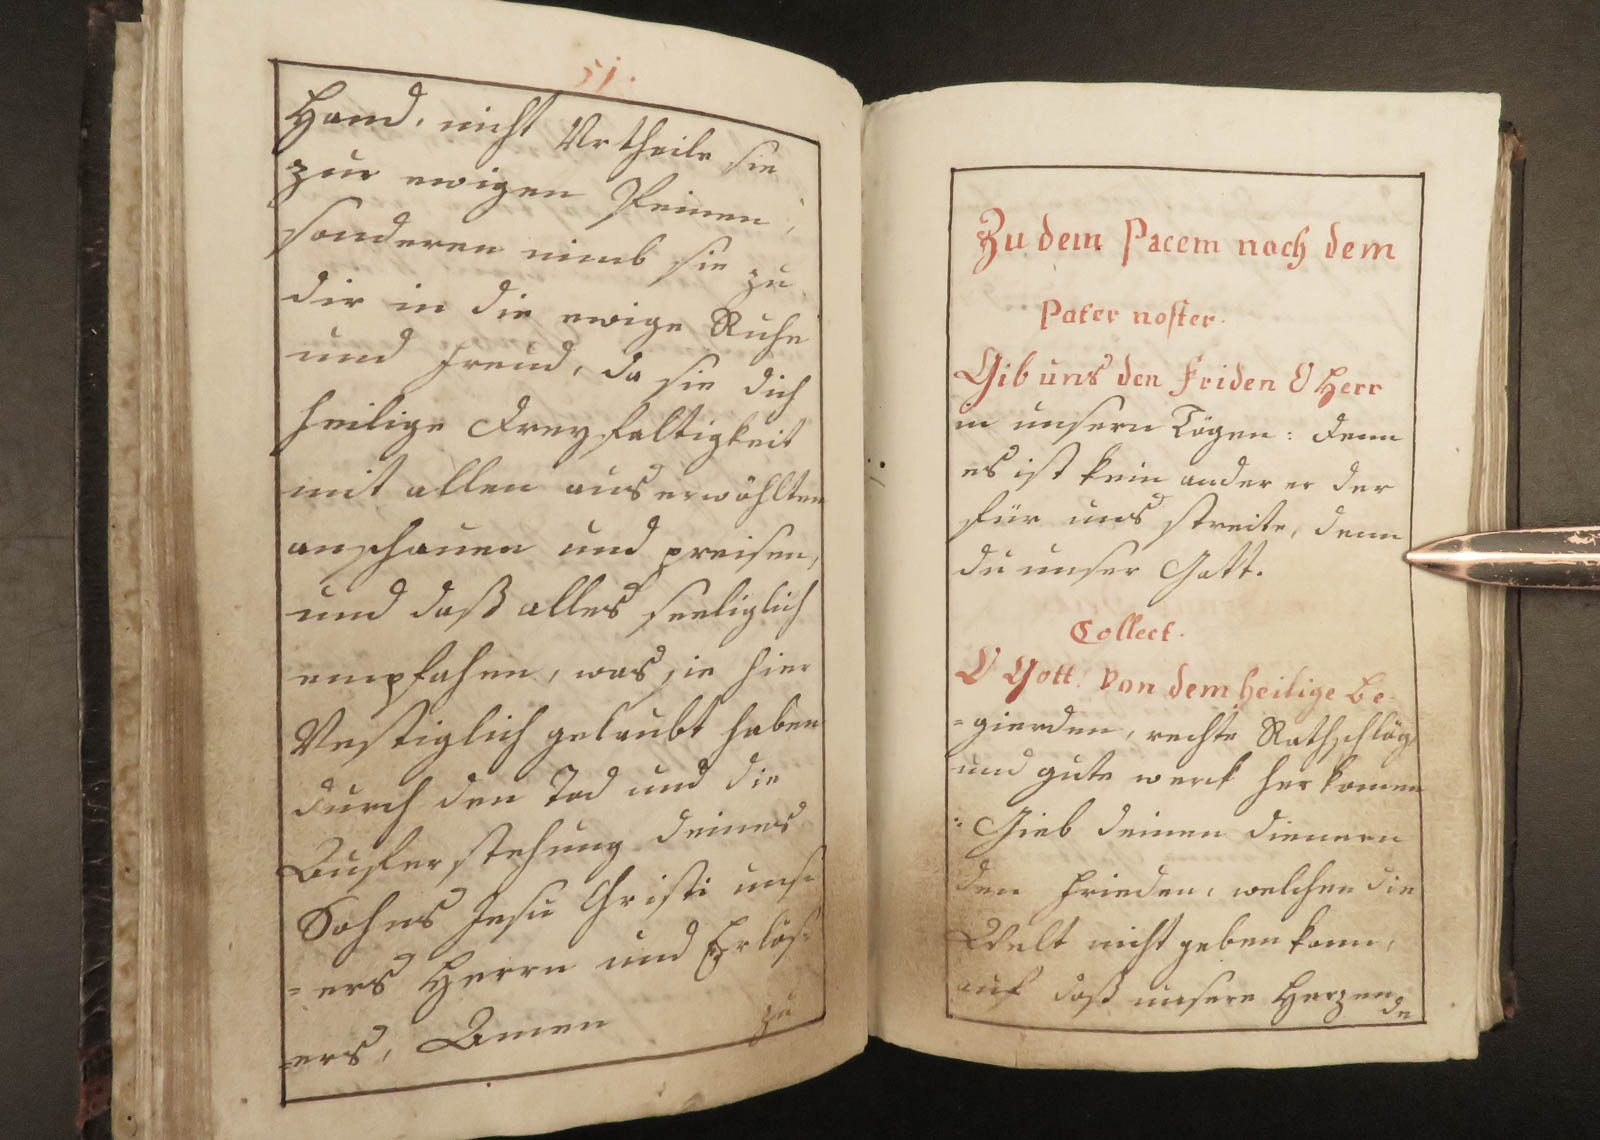 51.
Hand, nicht Urtheile sie
zur ewigen Peinen,
sonderen nimb sie zu
dir in die ewige Ruhe
und freud, da sie dich
heilige Dreyfaltigkeit
mit allen auserwöhlten
anschauen und preisen,
und daß alles seeliglich
empfahen, was sie hier
Vestiglich gelaubt haben
durch den Tod und die
Auferstehung deines
Sohns Jesu Christi uns-
=ers Herrn und Erlös-
=ers, Amen
zu
Zu dem Pacem nach dem
Pater noster.
Gib uns den Friden O Herr
in unsern Tägen: denn
es ist kein ander er der
für uns streite, denn
du unser Gott.
Collect.
O Gott! von dem heilige Be-
=gierden, rechte Rathschläg
und gute werck her komen
: Gieb deinen dienern
den frieden, welchen die
Welt nicht geben kann,
auf daß unsere Herzen
de